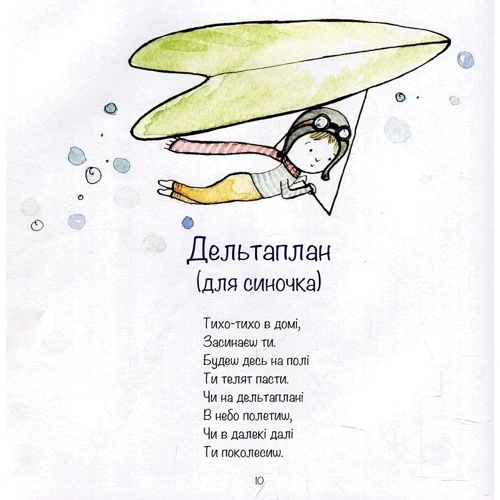 Дельтаплан
(для синочка)
Тихо-тихо в домі,
Засинаєш ти.
Будеш десь на полі
Ти телят пасти.
Чи на дельтаплані
В небо полетиш,
Чи в далекі далі
Ти поколесиш.
10